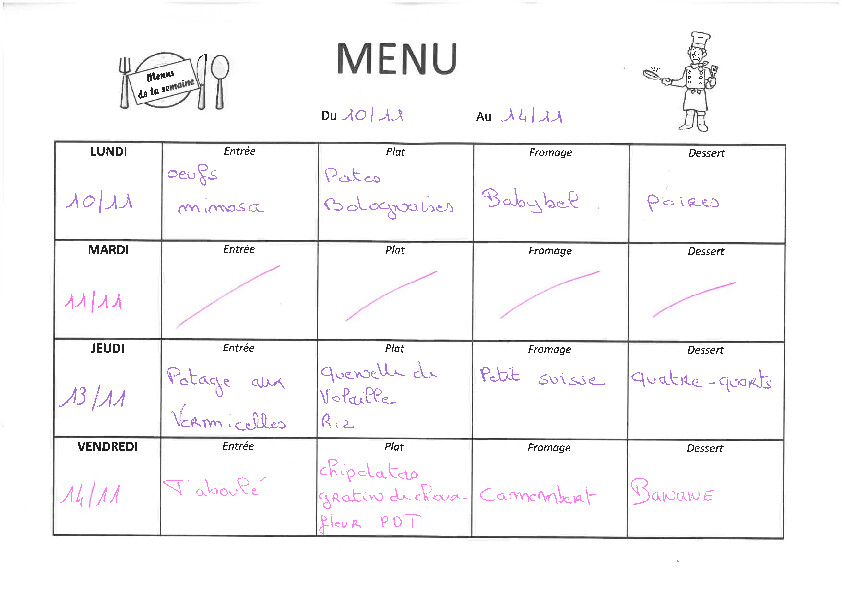 MENU
Menus
de la semaine
Du 10/11 Au 14/11
LUNDI Entrée Plat Fromage Dessert
10/11 oeufs mimosa Pates Bolognaises Babybel poires
MARDI Entrée Plat Fromage Dessert
11/11
JEUDI Entrée Plat Fromage Dessert
13/11 Potage aux Vermicelles Quenelle de Volaille Riz Petit suisse quatre-quarts
VENDREDI Entrée Plat Fromage Dessert
14/11 Taboulé chipolatas gratin de choux-fleur PDT Camembert Banane